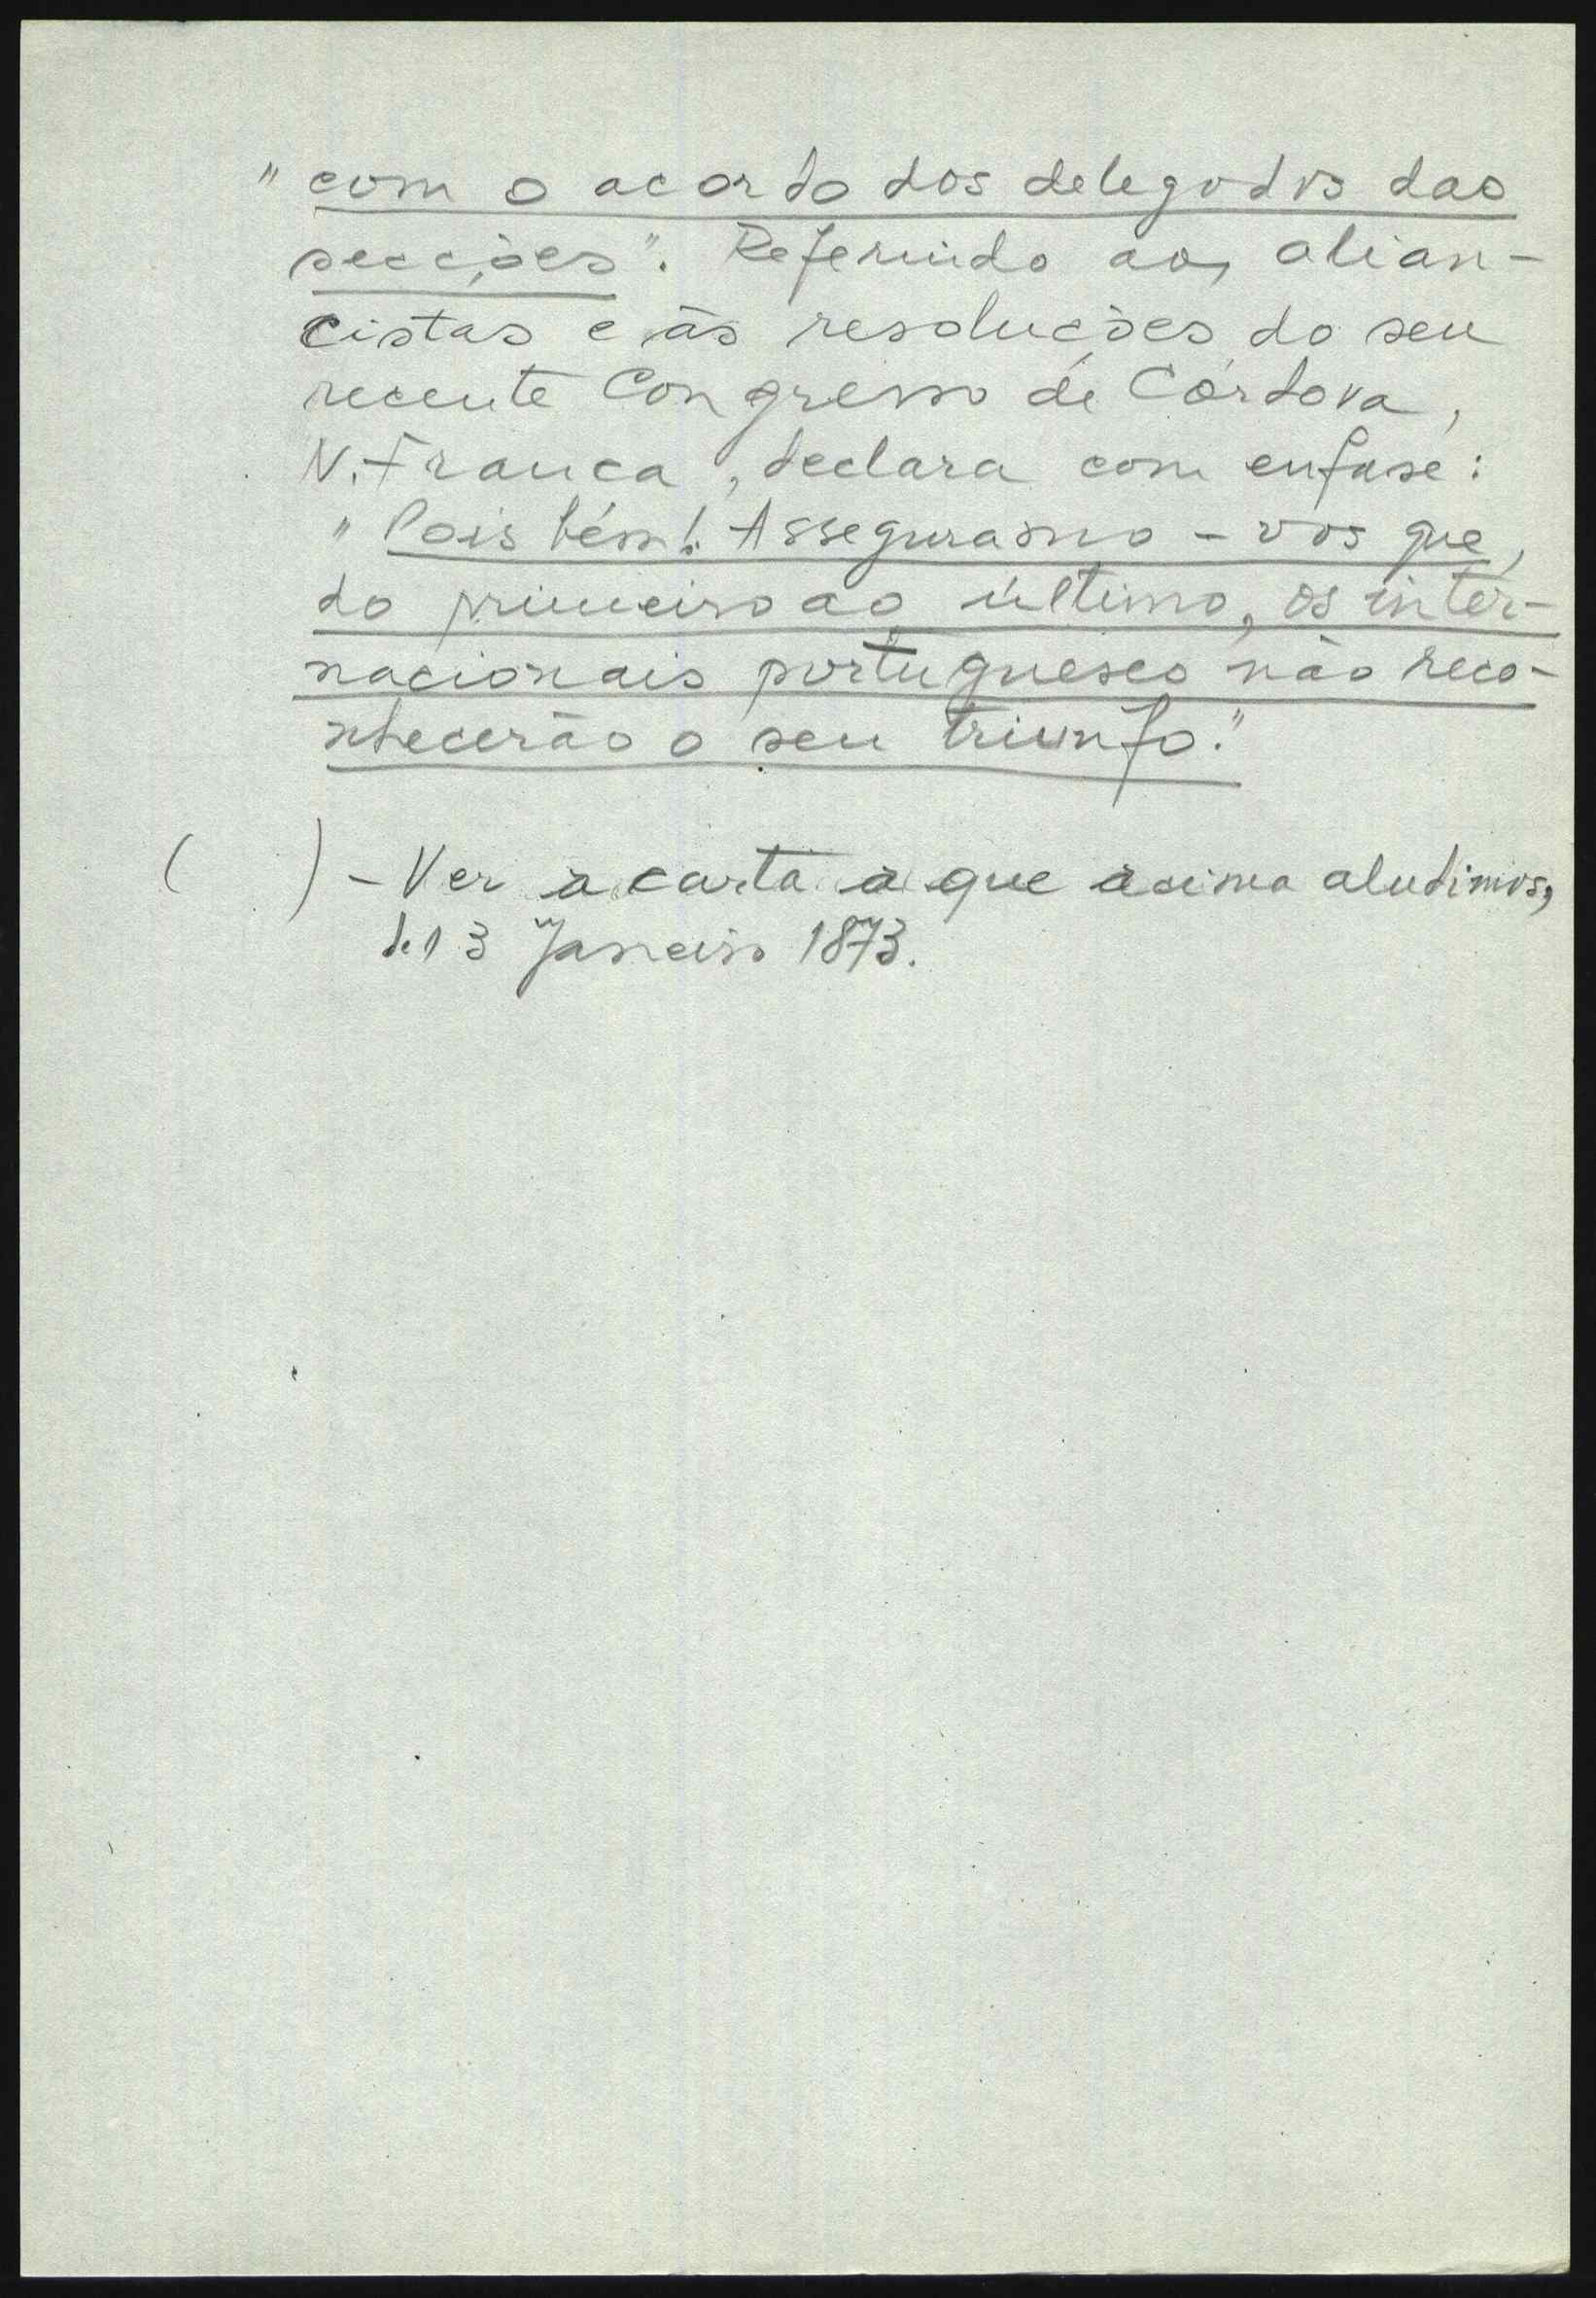 " com o acordo dos delegados das
secções". Referindo aos alian-
cistas e às resoluções do seu
recente Congresso de Córdova,
N. França, declara com enfase:
" Pois bém! Asseguramo-vos que,
do primeiro ao último, os inter-
nacionais portugueses não reco-
nhecerão o seu triunfo."
( ) - Ver a carta a que acima aludimos,
de 13 Janeiro 1873.